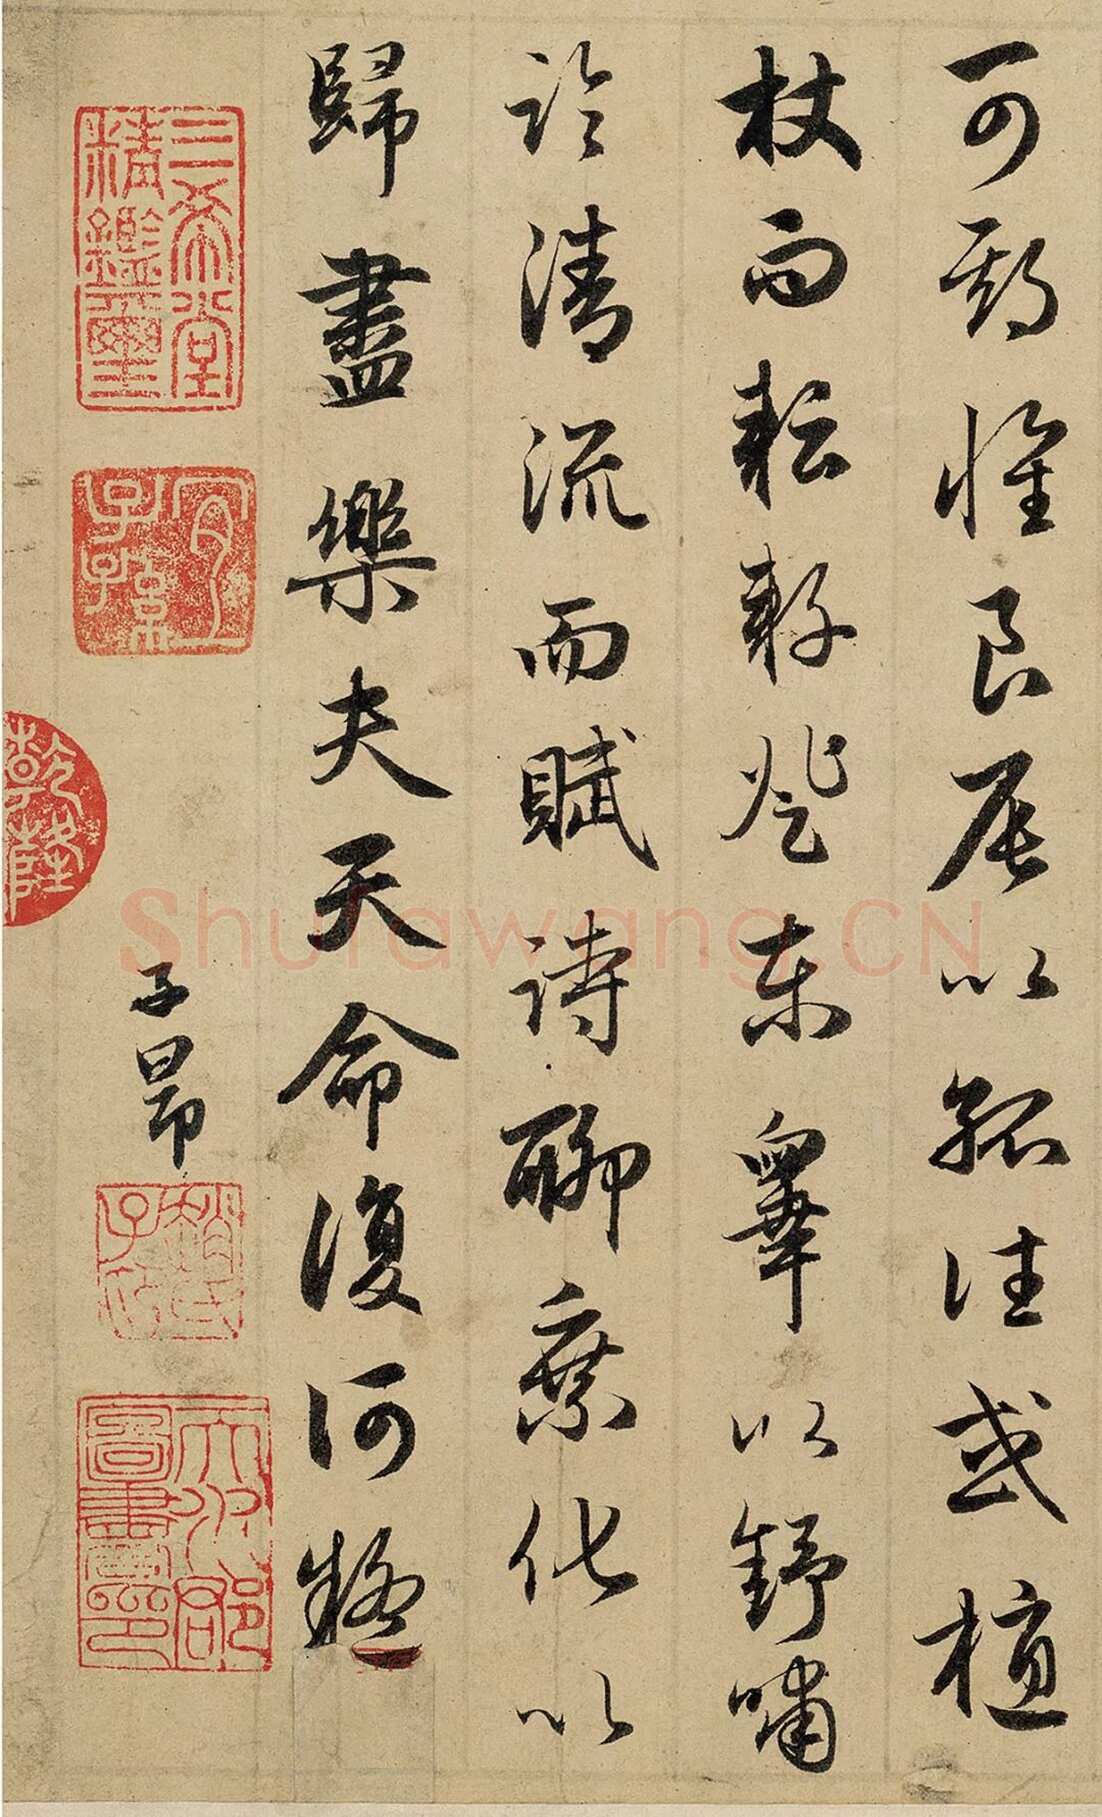 可期懷良辰以孤往或植
杖而耘耔登東皋以舒嘯
臨清流而賦詩聊乘化以
歸盡樂夫天命復何疑
子昂
三希堂精鑑璽
宜子孫
乾隆
趙氏子昂
天水郡圖書印
Shufawang.CN